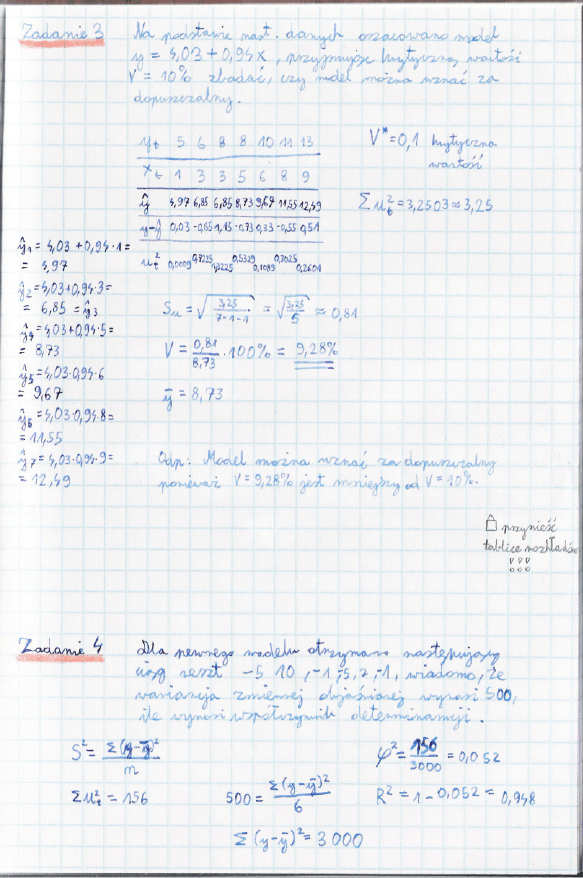 Zadanie 3 Na podstawie nast. danych oszacowano model
y = 4,03 + 0,94x, przyjmując krytyczną wartość
V* = 10% zbadać, czy model można uznać za
dopuszczalny.
yt 5 6 8 8 10 11 13
xt 1 3 3 5 6 8 9
ŷ 4,97 6,85 6,85 8,73 9,67 11,55 12,49
y-ŷ 0,03 -0,85 1,15 -0,73 0,33 -0,55 0,51
ut² 0,0009 0,7225 1,3225 0,5329 0,1089 0,3025 0,2601
V* = 0,1 krytyczna
wartość
Σut² = 3,2503 ≈ 3,25
ŷ1 = 4,03 + 0,94·1 =
= 4,97
ŷ2 = 4,03+0,94·3 =
= 6,85 = ŷ3
ŷ4 = 4,03+0,94·5 =
= 8,73
ŷ5 = 4,03·0,94·6
= 9,67
ŷ6 = 4,03·0,94·8 =
= 11,55
ŷ7 = 4,03·0,94·9 =
= 12,49
Su = √(3,25/(7-1-1)) = √(3,25/5) ≈ 0,81
V = 0,81/8,73 · 100% = 9,28%
ȳ = 8,73
Odp: Model można uznać za dopuszczalny
ponieważ V = 9,28% jest mniejszy od V = 10%.
przynieść
tablice rozkładów
!!!
Zadanie 4 Dla pewnego modelu otrzymano następujący
ciąg reszt -5, 10, -1, -5, 2, -1, wiadomo, że
wariancja zmiennej objaśnionej wynosi 500,
ile wynosi współczynnik determinacji.
S² = Σ(y-ȳ)²/n
φ² = 156/3000 = 0,052
Σut² = 156
500 = Σ(y-ȳ)²/6
R² = 1 - 0,052 = 0,948
Σ(y-ȳ)² = 3000